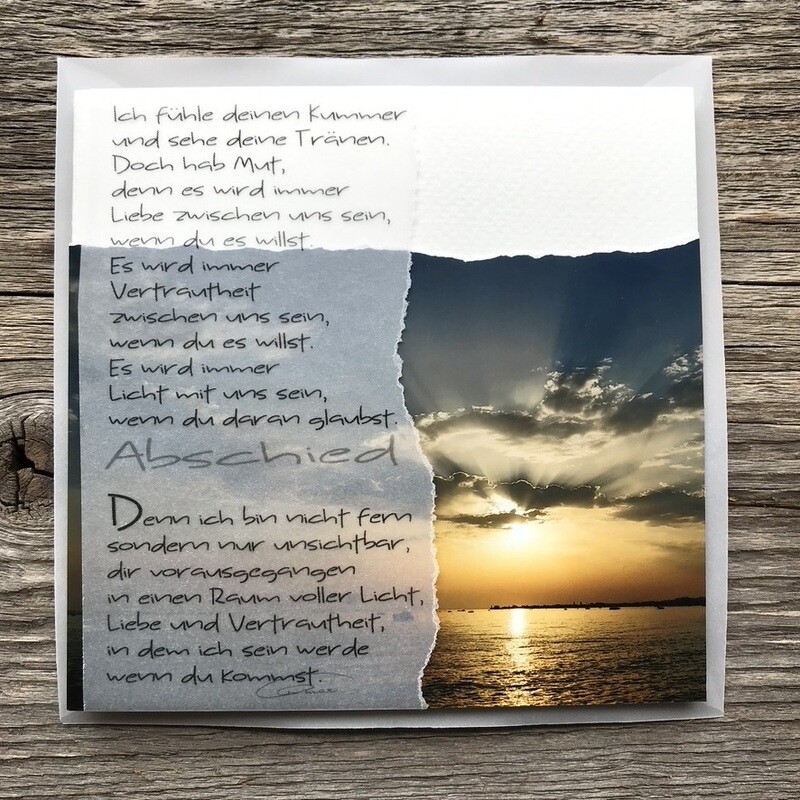 Ich fühle deinen Kummer
und sehe deine Tränen.
Doch hab Mut,
denn es wird immer
Liebe zwischen uns sein,
wenn du es willst.
Es wird immer
Vertrautheit
zwischen uns sein,
wenn du es willst.
Es wird immer
Licht mit uns sein,
wenn du daran glaubst.
Abschied
Denn ich bin nicht fern
sondern nur unsichtbar,
dir vorausgegangen
in einen Raum voller Licht,
Liebe und Vertrautheit,
in dem ich sein werde
wenn du kommst.